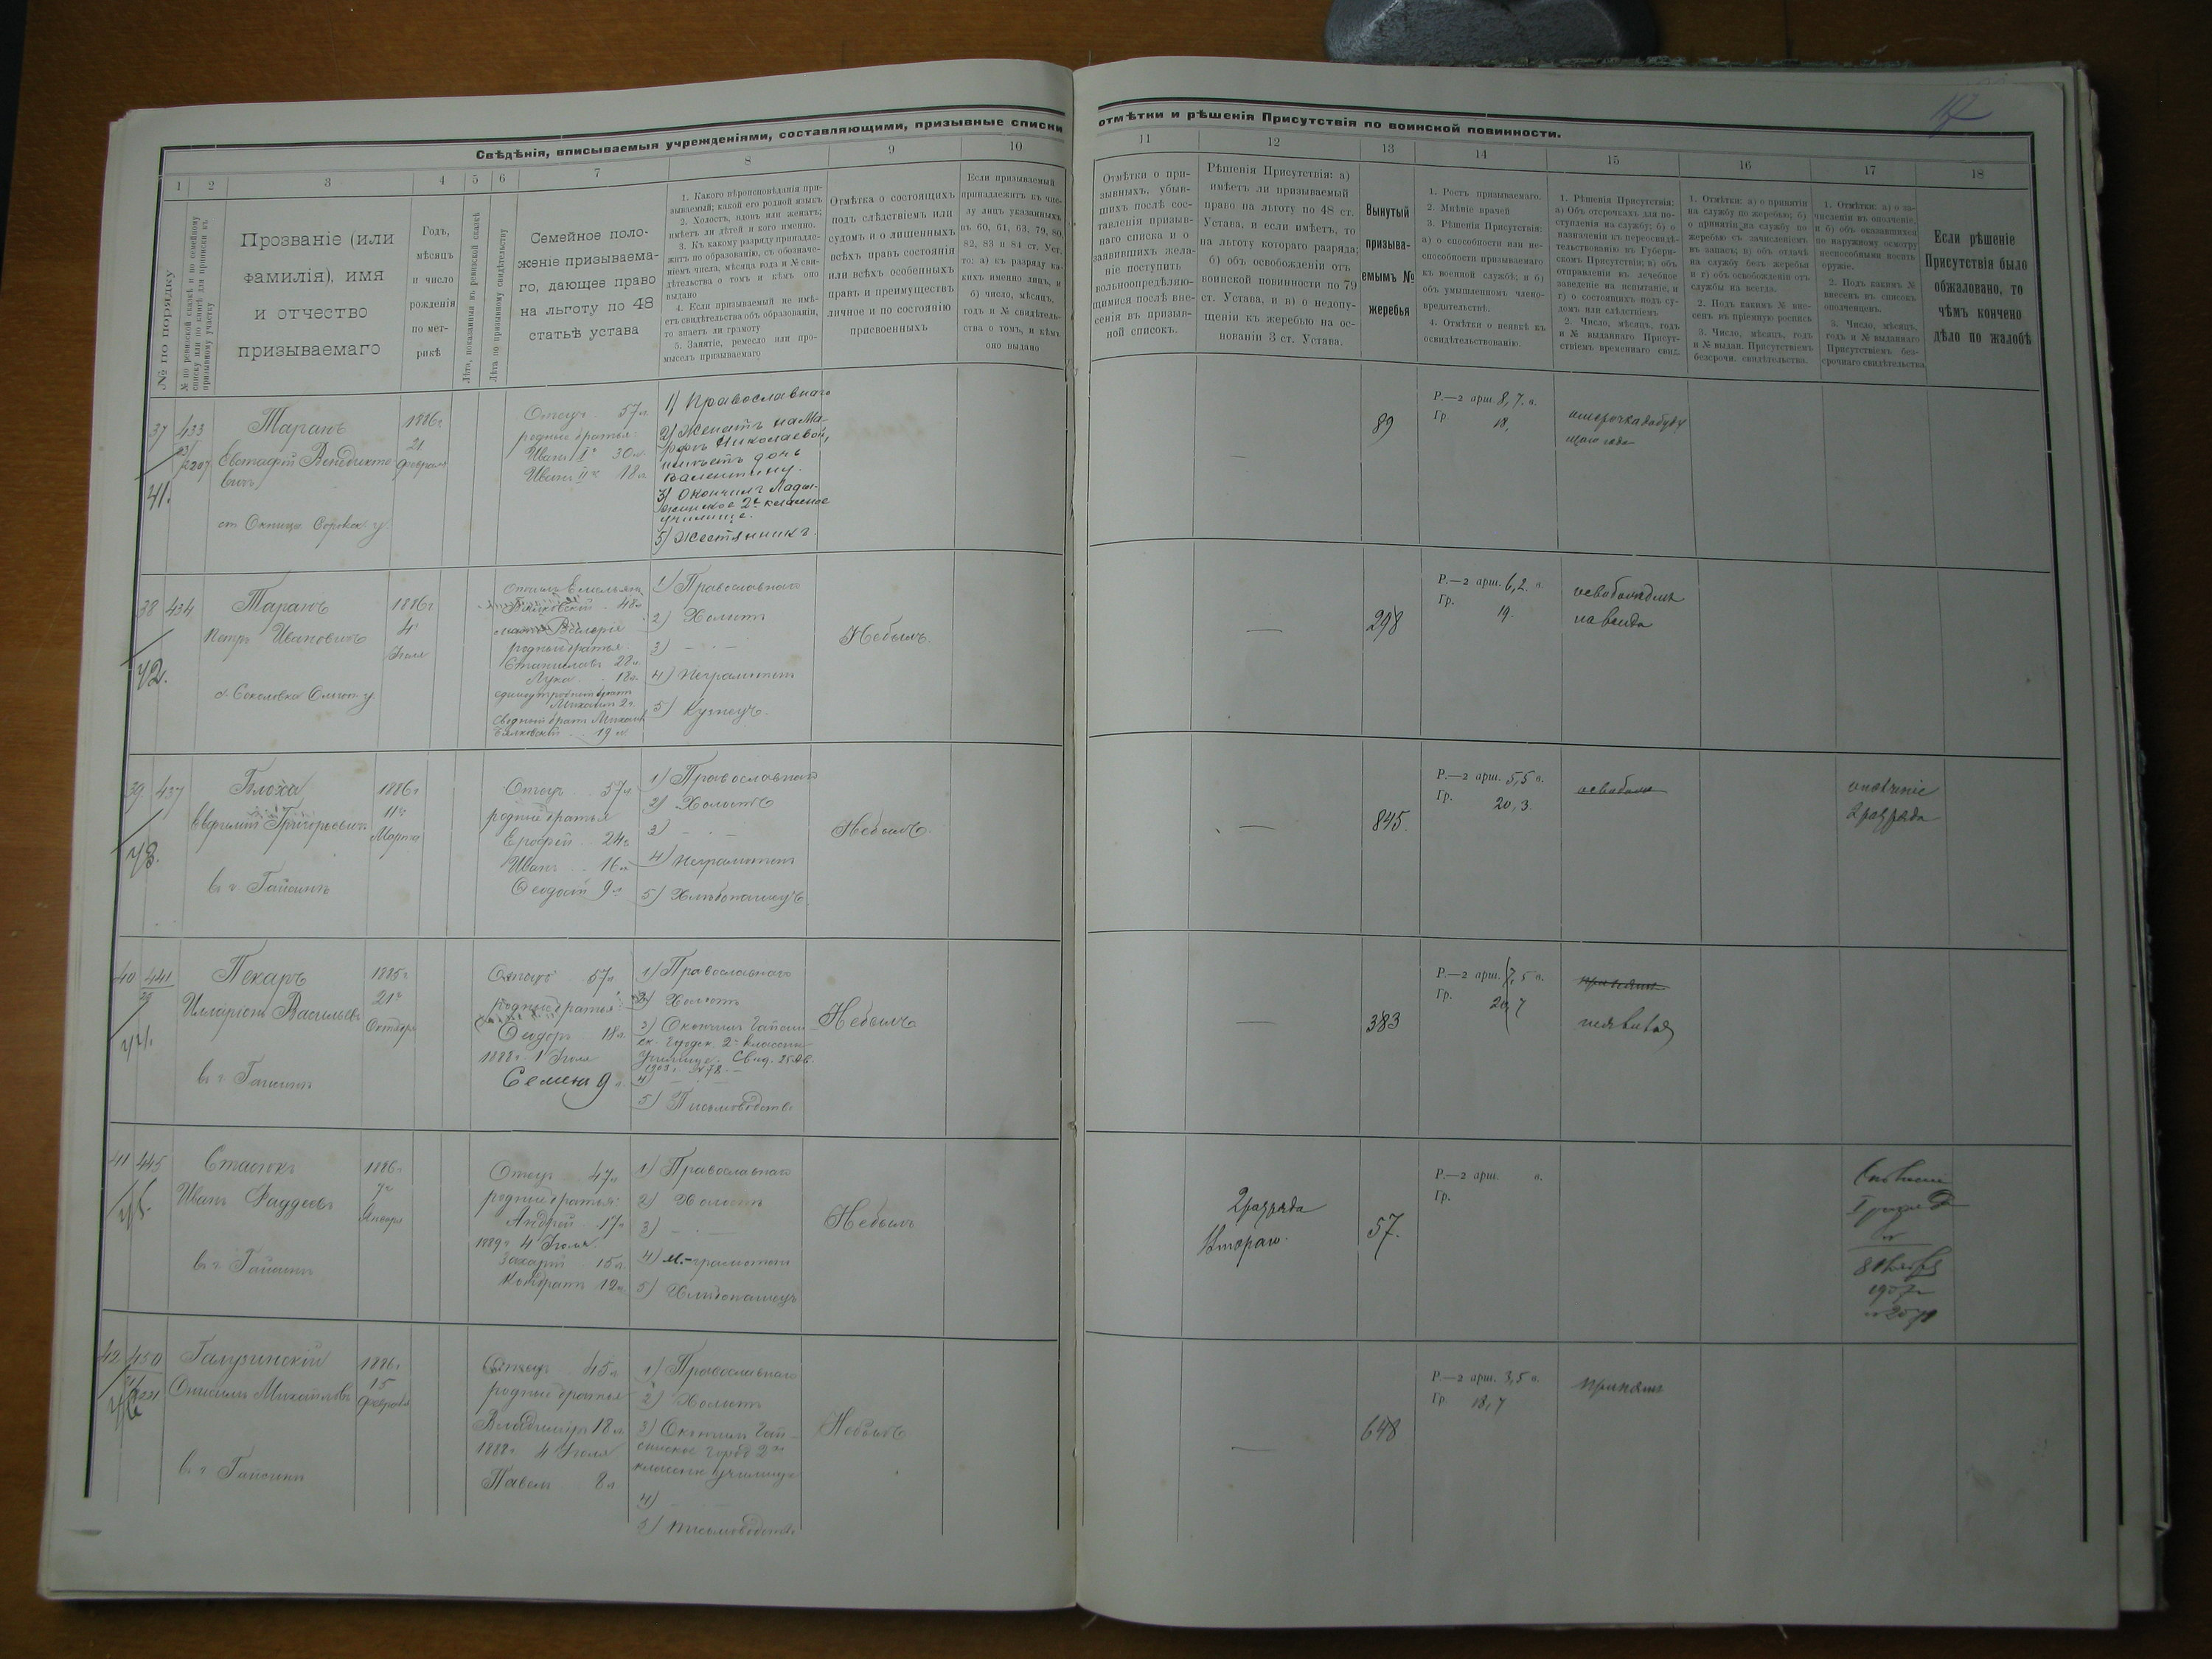 Свѣдѣнія, вписываемыя учрежденіями, составляющими, призывные списки
1 2 3 4 5 6 7 8 9 10
№ по порядку
№ по ревизской сказкѣ и по семейному
списку или по книгѣ для приписки къ
призывному участку
Прозваніе (или
фамилія), имя
и отчество
призываемаго
Годъ,
мѣсяцъ
и число
рожденія
по мет-
рикѣ
Лѣта, показанныя въ ревизской сказкѣ
Лѣта по призывному свидѣтельству
Семейное поло-
женіе призываема-
го, дающее право
на льготу по 48
статьѣ устава
1. Какого вѣроисповѣданія при-
зываемый; какой его родной языкъ
2. Холостъ, вдовъ или женатъ;
имѣетъ ли дѣтей и кого именно.
3. Къ какому разряду принадле-
житъ по образованію, съ обозначе-
ніемъ числа, мѣсяца года и № сви-
дѣтельства о томъ и кѣмъ оно
выдано
4. Если призываемый не имѣ-
етъ свидѣтельства объ образованіи,
то знаетъ ли грамоту
5. Занятіе, ремесло или про-
мыселъ призываемаго
Отмѣтка о состоящихъ
подъ слѣдствіемъ или
судомъ и о лишенныхъ
всѣхъ правъ состоянія
или всѣхъ особенныхъ
правъ и преимуществъ
личное и по состоянію
присвоенныхъ
Если призываемый
принадлежитъ къ чис-
лу лицъ указанныхъ
въ 60, 61, 63, 79, 80,
82, 83 и 84 ст. Уст.
то: а) къ разряду ка-
кихъ именно лицъ, и
б) число, мѣсяцъ,
годъ и № свидѣтель-
ства о томъ, и кѣмъ
оно выдано
37 433
41.
Таранъ
Евстафій Венедикто
вичъ
ст Окница Сорокск у.
1886г
21
Февраля
Отецъ 57л.
родные братья:
Иванъ Iй 30л
Иванъ IIй 18л
1) Православнаго
2) Женатъ на Ма-
рфѣ Николаевой,
имѣетъ дочь
Валентину.
3) Окончилъ Лады-
жинское 2х классное
училище.
5) Жестяникъ.
38 434
42.
Таранъ
Петръ Ивановичъ
с. Соколовка Ольгоп у.
1886г
4
Іюля
родные братья
Станиславъ 22л.
Лука 18л.
Михаилъ 2г.
сводный братъ Михаилъ
Бялковскій 19л
1) Православнаго
2) Холостъ
3) — · —
4) Неграмотенъ
5) Кузнецъ.
Небылъ.
39 437
43.
Блоха
Евфимій Григорьевичъ
въ г Гайсинѣ
1886г
11го
Марта
Отецъ 57л
родные братья
Ерофей 24г
Иванъ 16л
Ѳеодосій 9л
1) Православнаго
2) Холостъ
3) — · —
4) Неграмотенъ
5) Хлѣбопашецъ.
Небылъ.
40 441
44.
Пекарь
Илларіонъ Васильевъ
въ г Гайсинѣ
1885г
21го
Октября
Отецъ 57л
Родные братья:
Ѳеодоръ 18л.
1888г. 1 Іюля
Семенъ 9л
1) Православнаго
2) Холостъ
3) Окончилъ Гайсин-
ск. Городск. 2х классн
Училище. Свид.
1903г № 78. —
4) — · —
5) Письмоводств.
Небылъ
41 445
45.
Стаднкъ
Иванъ Фаддеевъ
въ г. Гайсинѣ
1886г
7го
Января
Отецъ 47л
родные братья:
Андрей 17л
1889г 4 Іюля.
Захарій 15л.
Кондратъ 12л.
1) Православнаго
2) Холостъ
3) — · —
4) М.-грамотенъ
5) Хлѣбопашецъ
Небылъ
42 450
46
Галузинскій
Онисимъ Михайловъ
въ г. Гайсинѣ
1886г
15
Февраля
Отецъ 45л
родные братья
Владиміръ 18л.
1888г 4 Іюля
Павелъ 8л
1) Православнаго
2) Холостъ
3) Окончилъ Гай-
синское город 2хъ
классное училище
4)
5) Письмоводств.
Небылъ
отмѣтки и рѣшенія Присутствія по воинской повинности.
11 12 13 14 15 16 17 18
Отмѣтки о при-
зывныхъ, убыв-
шихъ послѣ сос-
тавленія призыв-
наго списка и о
заявившихъ жела-
ніе поступить
вольноопредѣляю-
щимися послѣ вне-
сенія въ призыв-
ной списокъ.
Рѣшенія Присутствія: а)
имѣетъ ли призываемый
право на льготу по 48 ст.
Устава, и если имѣетъ, то
на льготу котораго разряда;
б) объ освобожденіи отъ
воинской повинности по 79
ст. Устава, и в) о недопу-
щеніи къ жеребью на ос-
нованіи 3 ст. Устава.
Вынутый
призыва-
емымъ №
жеребья
1. Ростъ призываемаго.
2. Мнѣніе врачей
3. Рѣшенія Присутствія:
а) о способности или не-
способности призываемаго
къ военной службѣ; и б)
объ умышленномъ члено-
вредительствѣ.
4. Отмѣтки о неявкѣ къ
освидѣтельствованію.
1. Рѣшенія Присутствія:
а) Объ отсрочкахъ для по-
ступленія на службу; б) о
назначеніи къ переосвидѣ-
тельствованію въ Губерн-
скомъ Присутствіи; в) объ
отправленіи въ лечебное
заведеніе на испытаніе, и
г) о состоящихъ подъ су-
домъ или слѣдствіемъ
2. Число, мѣсяцъ, годъ
и № выданнаго Присутст-
ствіемъ временнаго свид.
1. Отмѣтки: а) о принятіи
на службу по жеребью; б)
о принятіи на службу по
жеребью съ зачисленіемъ
въ запасъ; в) объ отдачѣ
на службу безъ жеребья
и г) объ освобожденіи отъ
службы на всегда.
2. Подъ какимъ № вне-
сенъ въ пріемную роспись
3. Число, мѣсяцъ, годъ
и № выдан. Присутствіемъ
безсрочн. свидѣтельства.
1. Отмѣтки: а) о за-
численіи въ ополченіе,
и б) объ оказавшихся
по наружному осмотру
неспособными носить
оружіе.
2. Подъ какимъ №
внесенъ въ списокъ
ополченцевъ.
3. Число, мѣсяцъ,
годъ и № выданнаго
Присутствіемъ без-
срочнаго свидѣтельства
Если рѣшеніе
Присутствія было
обжаловано, то
чѣмъ кончено
дѣло по жалобѣ
—
89
Р.—2 арш. 8,7. в.
Гр. 18,
отсрочка до буду
щаго года
—
298
Р.—2 арш. 6,2. в.
Гр. 19.
освобожденъ
навсегда
—
845.
Р.—2 арш. 5,5 в.
Гр. 20,3.
ополченіе
2 разряда
—
383
Р.—2 арш. 7,5 в.
Гр. 20,7
неявился
2 разряда
Втораго.
57.
Р.—2 арш. в.
Гр.
—
648
Р—2 арш. 3,5 в.
Гр. 18,7
принятъ